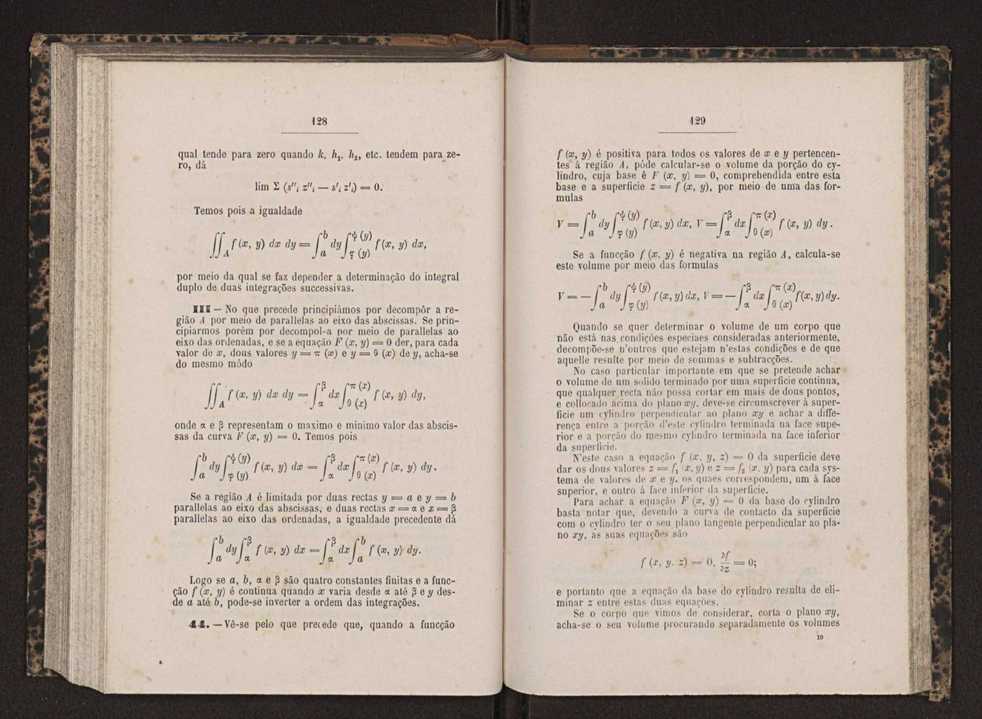 128
qual tende para zero quando k, h₁, h₂, etc. tendem para ze-
ro, dá
lim Σ (s''ᵢ z''ᵢ — s'ᵢ z'ᵢ) = 0.
Temos pois a igualdade
∬_A f (x, y) dx dy = ∫_a^b dy ∫_{φ (y)}^{ψ (y)} f (x, y) dx,
por meio da qual se faz depender a determinação do integral
duplo de duas integrações successivas.
III — No que precede principiámos por decompôr a re-
gião A por meio de parallelas ao eixo das abscissas. Se prin-
cipiarmos porém por decompol-a por meio de parallelas ao
eixo das ordenadas, e se a equação F (x, y) = 0 der, para cada
valor de x, dous valores y = π (x) e y = θ (x) de y, acha-se
do mesmo módo
∬_A f (x, y) dx dy = ∫_α^β dx ∫_{θ (x)}^{π (x)} f (x, y) dy,
onde α e β representam o maximo e minimo valor das abscis-
sas da curva F (x, y) = 0. Temos pois
∫_a^b dy ∫_{φ (y)}^{ψ (y)} f (x, y) dx = ∫_α^β dx ∫_{θ (x)}^{π (x)} f (x, y) dy.
Se a região A é limitada por duas rectas y = a e y = b
parallelas ao eixo das abscissas, e duas rectas x = α e x = β
parallelas ao eixo das ordenadas, a igualdade precedente dá
∫_a^b dy ∫_α^β f (x, y) dx = ∫_α^β dx ∫_a^b f (x, y) dy.
Logo se a, b, α e β são quatro constantes finitas e a func-
ção f (x, y) é continua quando x varia desde α até β e y des-
de a até b, pode-se inverter a ordem das integrações.
44. — Vê-se pelo que precede que, quando a funcção
129
f (x, y) é positiva para todos os valores de x e y pertencen-
tes á região A, póde calcular-se o volume da porção do cy-
lindro, cuja base é F (x, y) = 0, comprehendida entre esta
base e a superficie z = f (x, y), por meio de uma das for-
mulas
V = ∫_a^b dy ∫_{φ (y)}^{ψ (y)} f (x, y) dx, V = ∫_α^β dx ∫_{θ (x)}^{π (x)} f (x, y) dy.
Se a funcção f (x, y) é negativa na região A, calcula-se
este volume por meio das formulas
V = — ∫_a^b dy ∫_{φ (y)}^{ψ (y)} f (x, y) dx, V = — ∫_α^β dx ∫_{θ (x)}^{π (x)} f (x, y) dy.
Quando se quer determinar o volume de um corpo que
não está nas condições especiaes consideradas anteriormente,
decompõe-se n'outros que estejam n'estas condições e de que
aquelle resulte por meio de sommas e subtracções.
No caso particular importante em que se pretende achar
o volume de um solido terminado por uma superficie continua,
que qualquer recta não possa cortar em mais de dous pontos,
e collocado ácima do plano xy, deve-se circumscrever á super-
ficie um cylindro perpendicular ao plano xy e achar a diffe-
rença entre a porção d'este cylindro terminada na face supe-
rior e a porção do mesmo cylindro terminada na face inferior
da superficie.
N'este caso a equação f (x, y, z) = 0 da superficie deve
dar os dous valores z = f₁ (x, y) e z = f₂ (x, y) para cada sys-
tema de valores de x e y, os quaes correspondem, um á face
superior, e outro á face inferior da superficie.
Para achar a equação F (x, y) = 0 da base do cylindro
basta notar que, devendo a curva de contacto da superficie
com o cylindro ter o seu plano tangente perpendicular ao pla-
no xy, as suas equações são
f (x, y, z) = 0, ∂f/∂z = 0;
e portanto que a equação da base do cylindro resulta de eli-
minar z entre estas duas equações.
Se o corpo que vimos de considerar, corta o plano xy,
acha-se o seu volume procurando separadamente os volumes
10